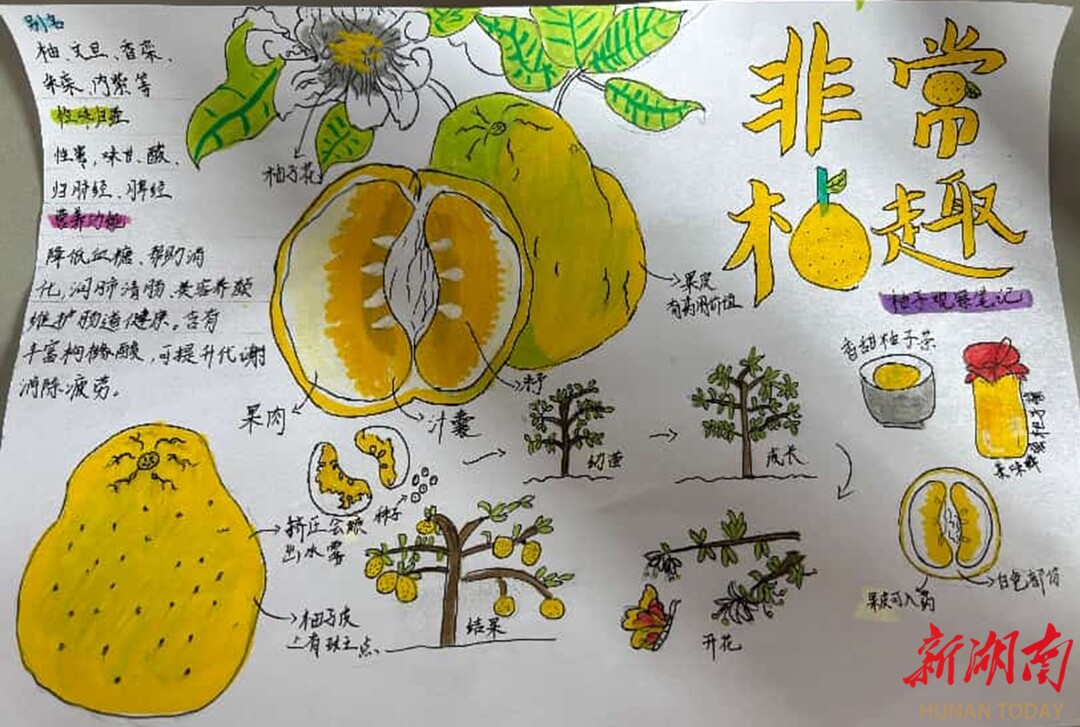 别名
柚、文旦、香栾、
朱栾、内紫等
性味归经
性寒,味甘、酸、
归肺经、脾经
营养功能
降低血糖、帮助消
化,润肺清肠、美容养颜
维护肠道健康。含有
丰富枸橼酸,可提升代谢
消除疲劳。
柚子花
非常
柚趣
柚子观察笔记
果皮
有药用价值
果肉
汁囊
种子
幼苗
成长
香甜柚子茶
蜂蜜柚子
美味
挤压会喷
出水雾
柚子皮
上有斑点
结果
开花
果皮可入药
白色部份
新湖南
HUNAN TODAY